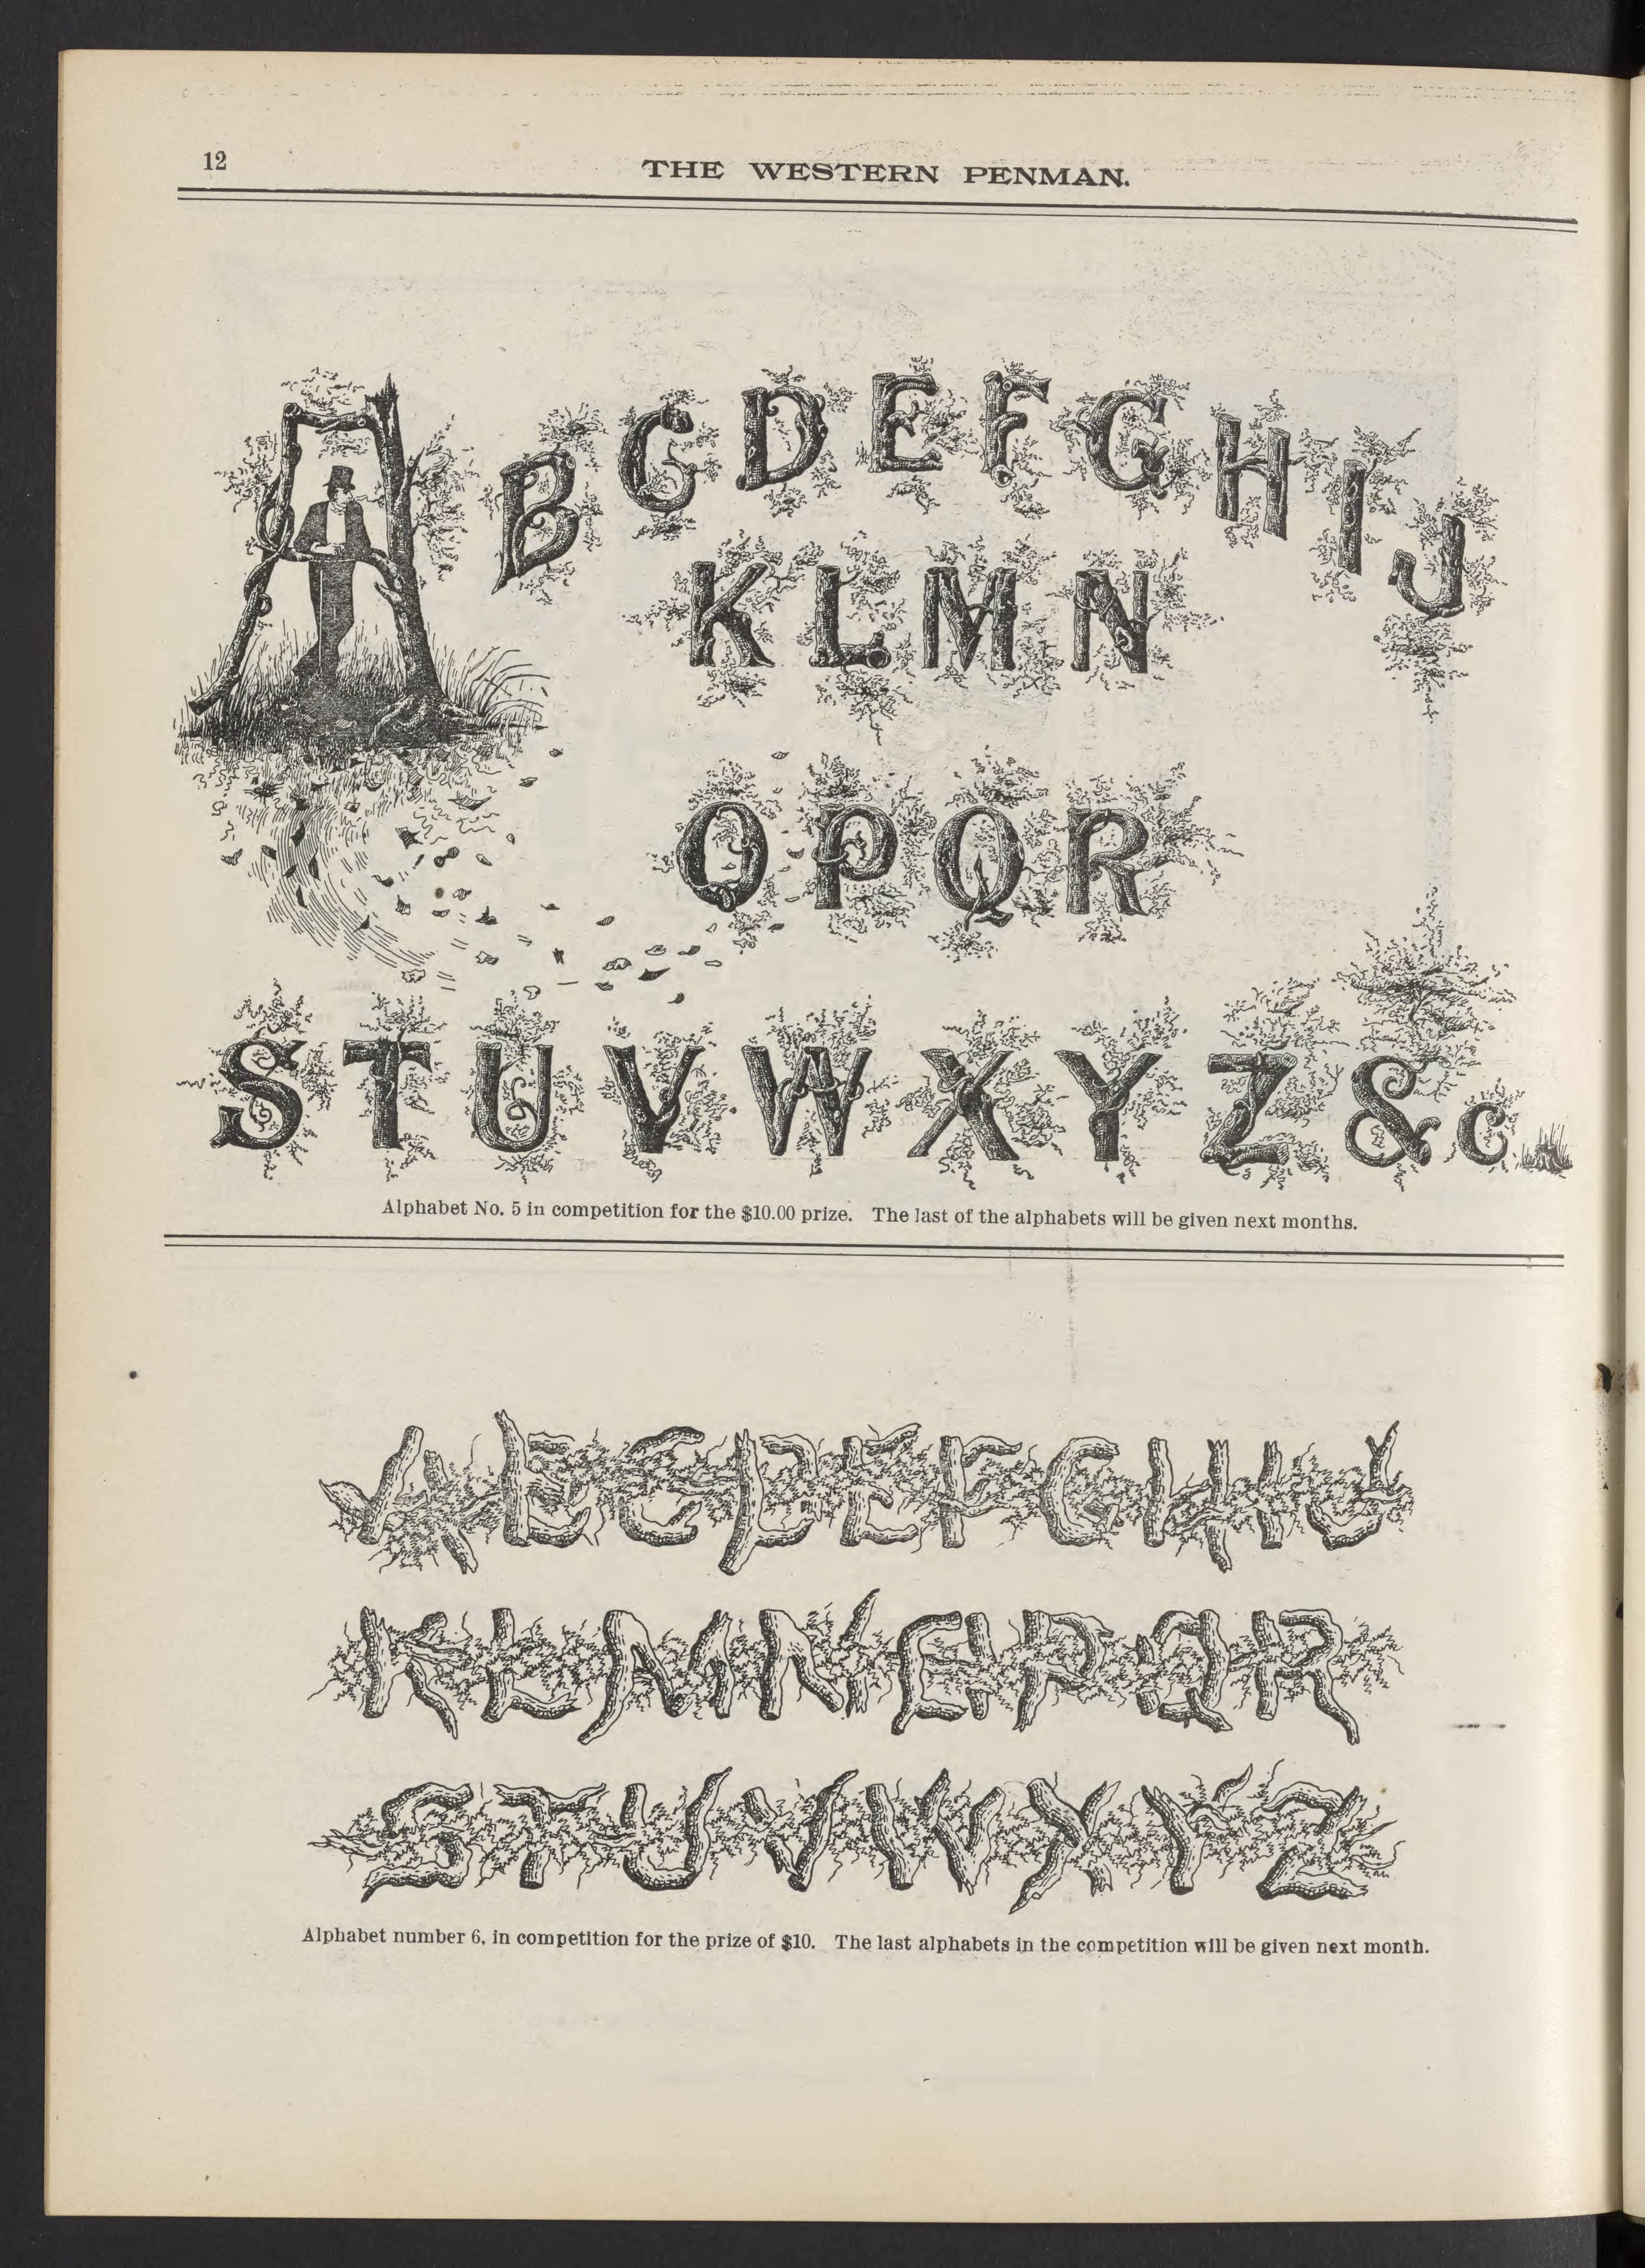 12
THE WESTERN PENMAN.
A B C D E F G H I J
K L M N
O P Q R
S T U V W X Y Z & c.
Alphabet No. 5 in competition for the $10.00 prize. The last of the alphabets will be given next months.
A B C D E F G H I J
K L M N O P Q R
S T U V W X Y Z
Alphabet number 6, in competition for the prize of $10. The last alphabets in the competition will be given next month.